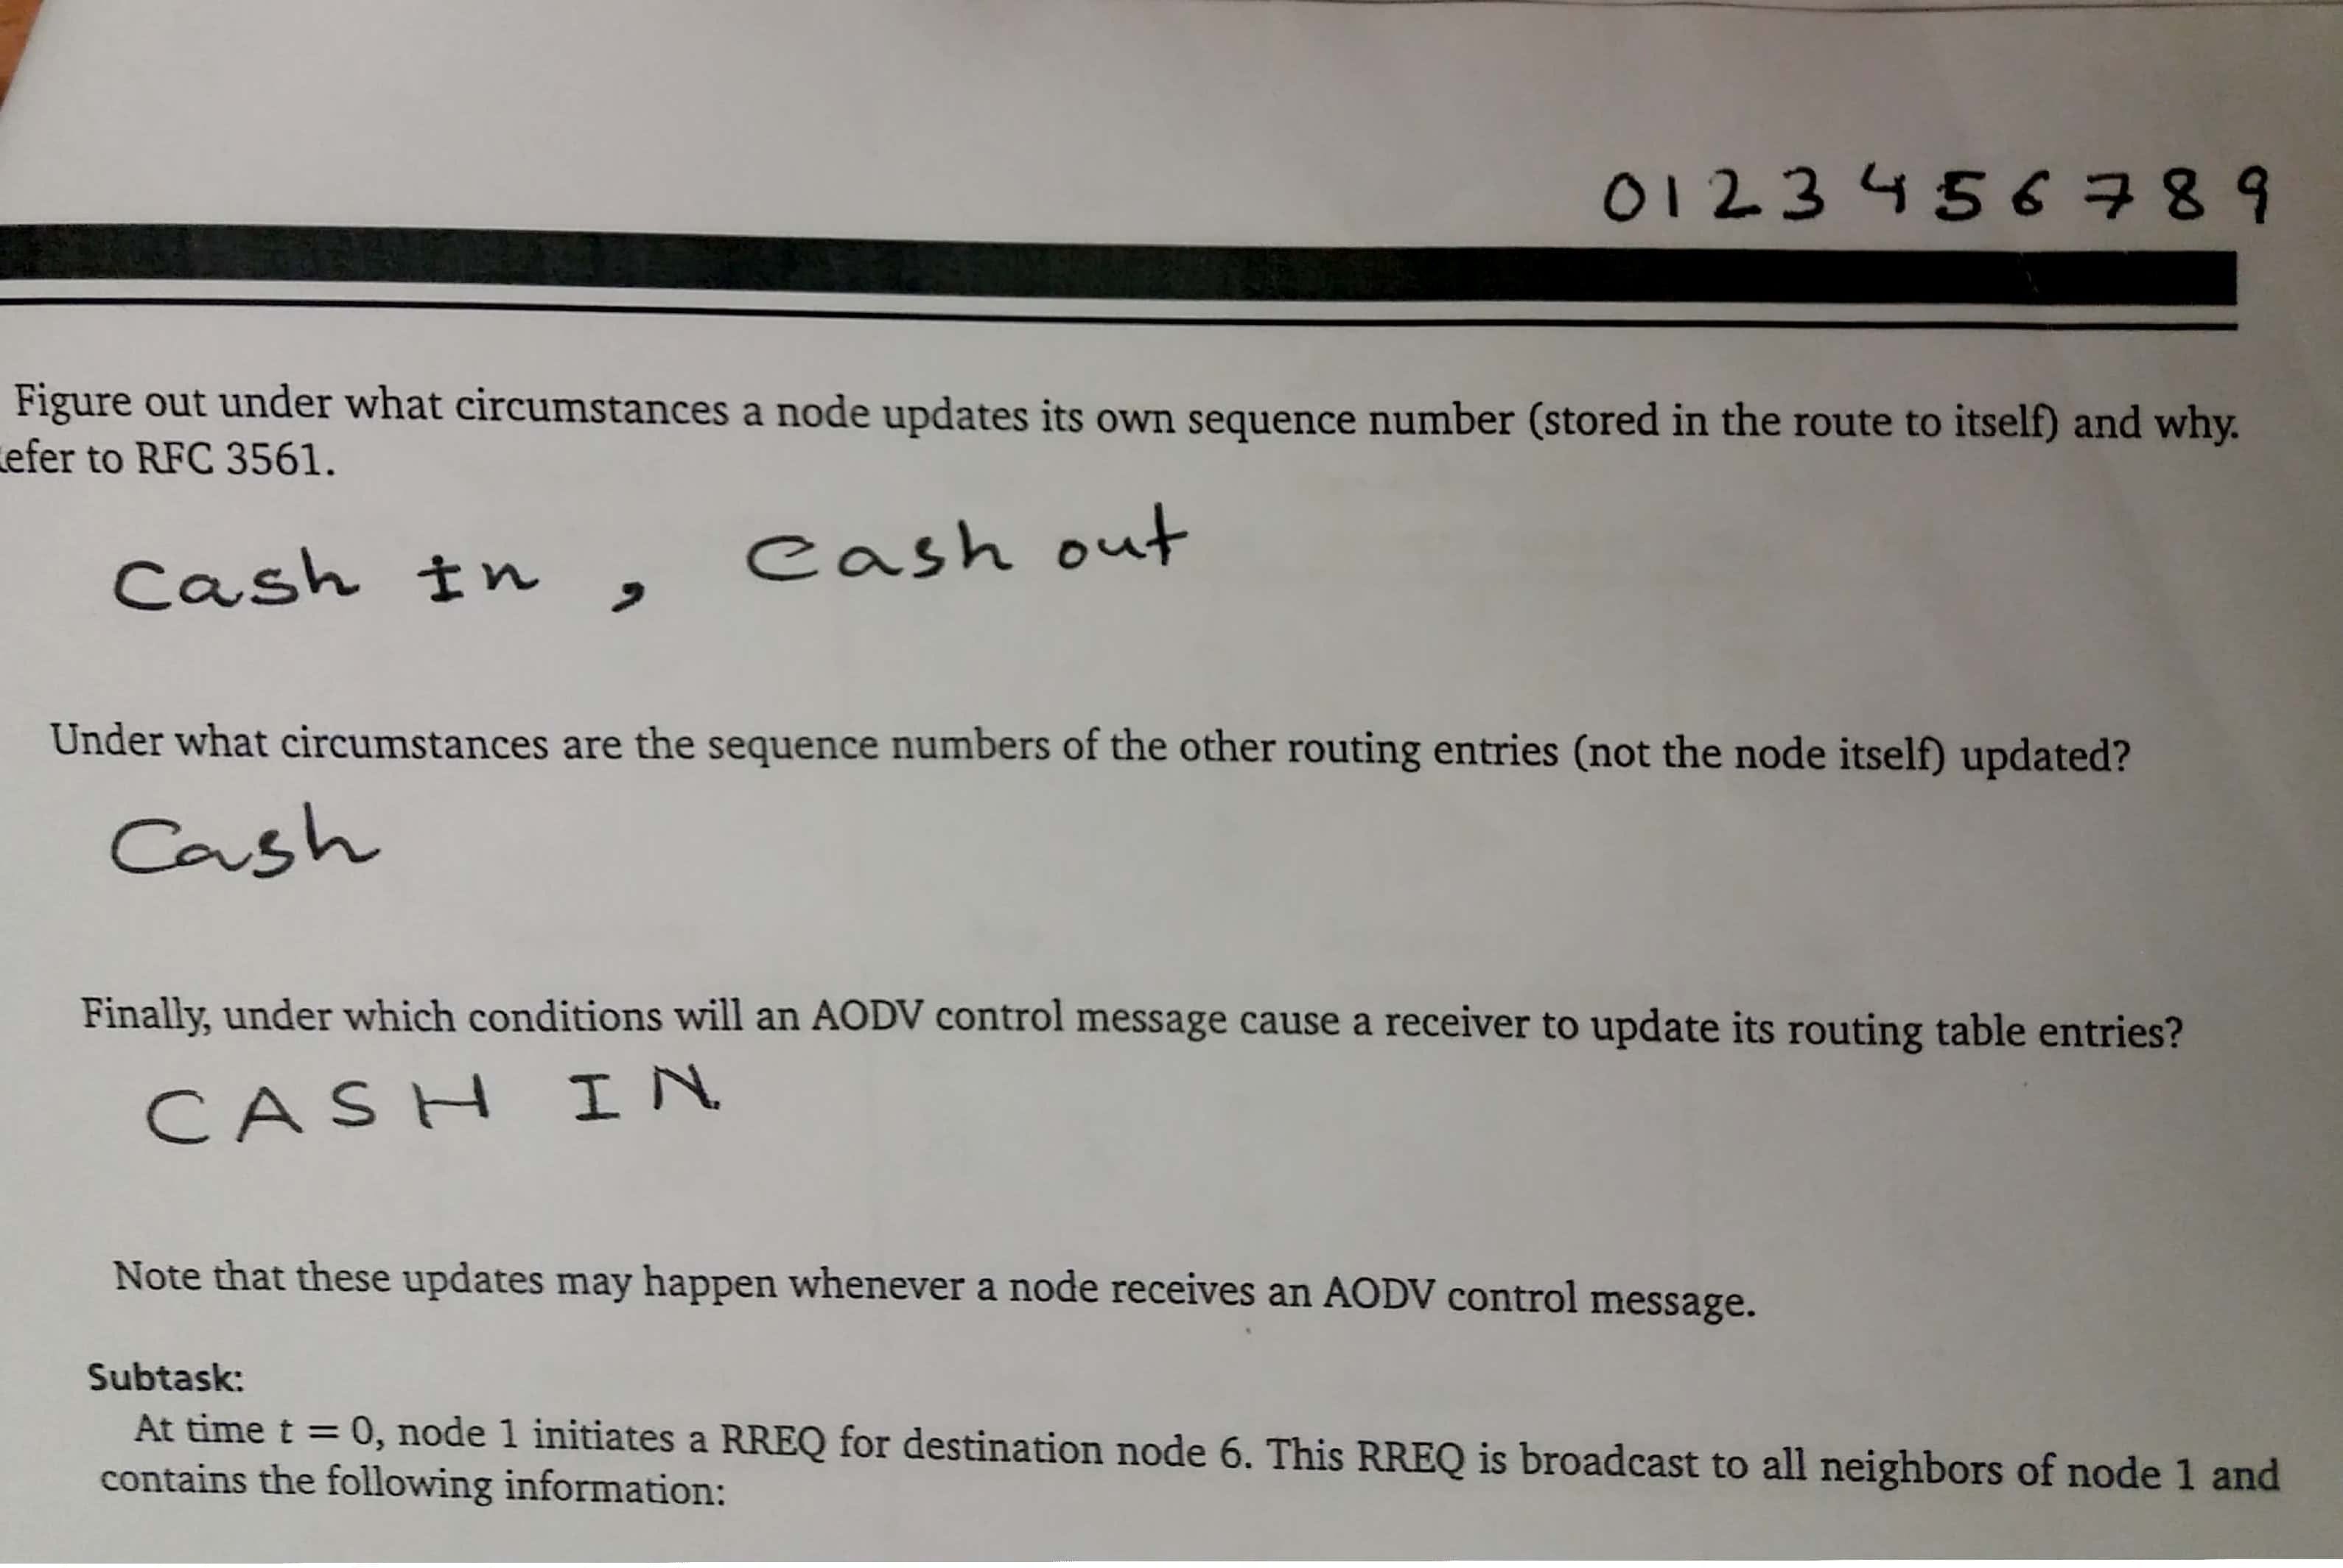 0 1 2 3 4 5 6 7 8 9
Figure out under what circumstances a node updates its own sequence number (stored in the route to itself) and why.
efer to RFC 3561.
Cash in , Cash out
Under what circumstances are the sequence numbers of the other routing entries (not the node itself) updated?
Cash
Finally, under which conditions will an AODV control message cause a receiver to update its routing table entries?
CASH IN
Note that these updates may happen whenever a node receives an AODV control message.
Subtask:
At time t = 0, node 1 initiates a RREQ for destination node 6. This RREQ is broadcast to all neighbors of node 1 and
contains the following information: